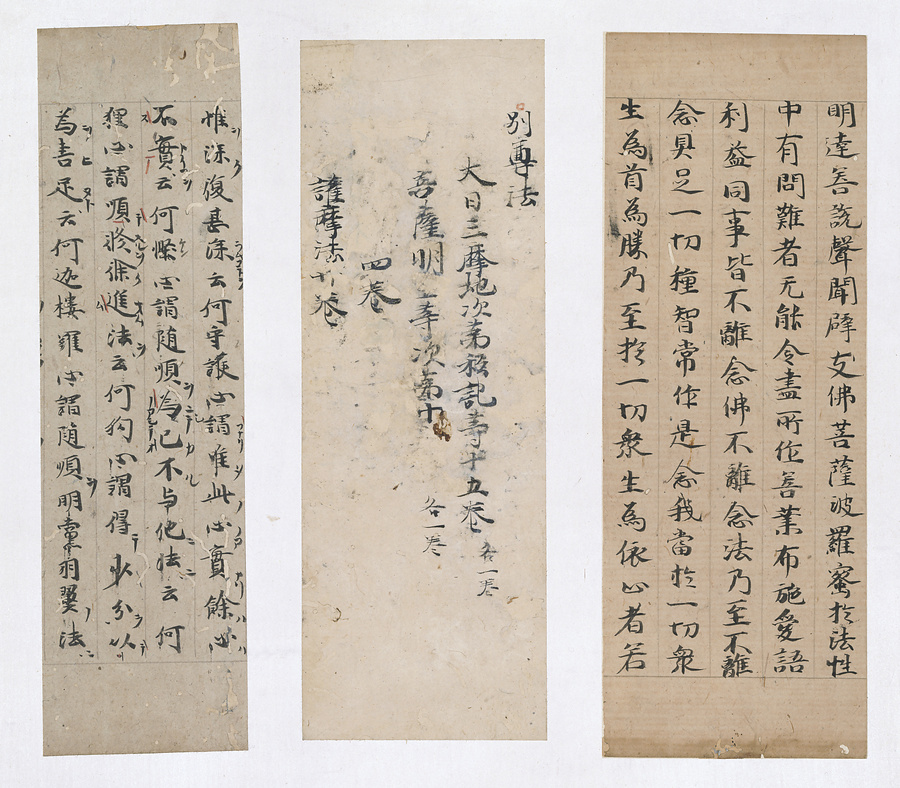 明達善說聲聞辟支佛菩薩波羅蜜於法性
中有問難者无能令盡所作善業布施愛語
利益同事皆不離念佛不離念法乃至不離
念具足一切種智常作是念我當於一切衆
生為首為勝乃至於一切衆生為依止者若
別尊法
大日三摩地次第私記等十五卷 各一卷
菩薩明 等次第十 各一卷
四卷
護摩法十卷
惟深復甚深云何守護心謂唯此心實餘心
不實云何慳心謂随順為己不与他法云何
狸心謂順修徐進法云何狗心謂得少分以
為喜足云何迦樓羅心謂随順明黨羽翼法